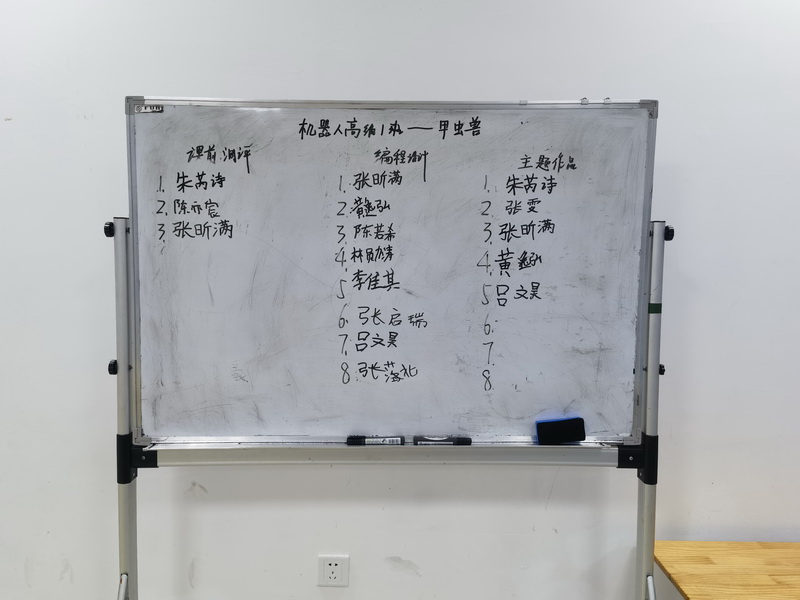 机器人高级1班——甲虫兽
课前测评
1. 朱芮诗
2. 陈亦宸
3. 张昕满
编程设计
1. 张昕满
2. 黄逸弘
3. 陈若希
4. 林
5. 李佳其
6. 张启瑞
7. 吕文昊
8. 张落北
主题作品
1. 朱芮诗
2. 张雯
3. 张昕满
4. 黄逸弘
5. 吕文昊
6.
7.
8.